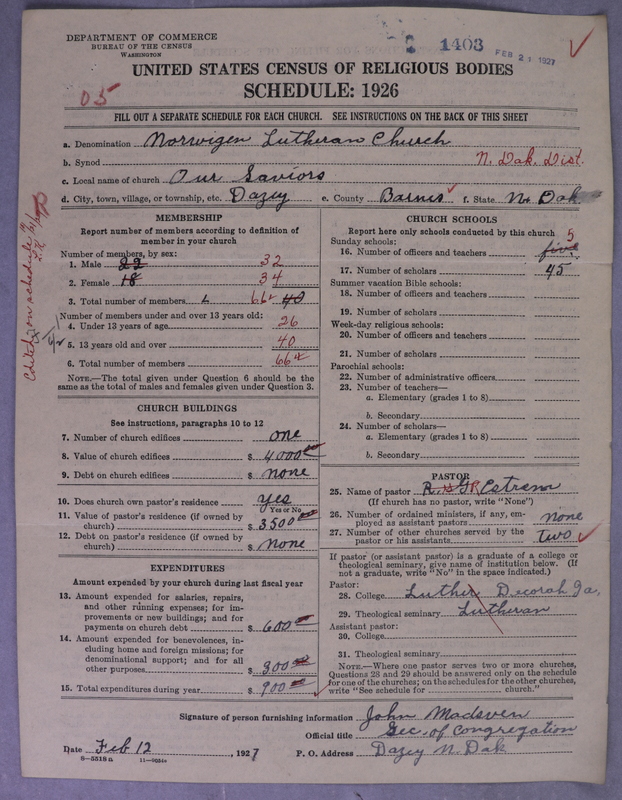 DEPARTMENT OF COMMERCE
BUREAU OF THE CENSUS
WASHINGTON
1403
FEB 21 1927
UNITED STATES CENSUS OF RELIGIOUS BODIES
SCHEDULE: 1926
05
FILL OUT A SEPARATE SCHEDULE FOR EACH CHURCH. SEE INSTRUCTIONS ON THE BACK OF THIS SHEET
a. Denomination Norwigen Lutheran Church
b. Synod N. Dak. Dist.
c. Local name of church Our Saviors
d. City, town, village, or township, etc. Dazey e. County Barnes f. State N. Dak
MEMBERSHIP
Report number of members according to definition of
member in your church
Number of members, by sex:
1. Male 22 32
2. Female 18 34
3. Total number of members 66 40
Number of members under and over 13 years old:
4. Under 13 years of age 26
5. 13 years old and over 40
6. Total number of members 66
NOTE.—The total given under Question 6 should be
same as the total of males and females given under Question 3.
CHURCH BUILDINGS
See instructions, paragraphs 10 to 12
7. Number of church edifices one
8. Value of church edifices $ 4000
9. Debt on church edifices $ none
10. Does church own pastor's residence yes
Yes or No
11. Value of pastor's residence (if owned by
church) $ 3500
12. Debt on pastor's residence (if owned by
church) $ none
EXPENDITURES
Amount expended by your church during last fiscal year
13. Amount expended for salaries, repairs,
and other running expenses; for im-
provements or new buildings; and for
payments on church debt $ 600
14. Amount expended for benevolences, in-
cluding home and foreign missions; for
denominational support; and for all
other purposes $ 300
15. Total expenditures during year $ 900
CHURCH SCHOOLS
Report here only schools conducted by this church
Sunday schools:
16. Number of officers and teachers five 5
17. Number of scholars 45
Summer vacation Bible schools:
18. Number of officers and teachers
19. Number of scholars
Week-day religious schools:
20. Number of officers and teachers
21. Number of scholars
Parochial schools:
22. Number of administrative officers
23. Number of teachers—
a. Elementary (grades 1 to 8)
b. Secondary
24. Number of scholars—
a. Elementary (grades 1 to 8)
b. Secondary
PASTOR
25. Name of pastor
(If church has no pastor, write "None")
26. Number of ordained ministers, if any, em-
ployed as assistant pastors none
27. Number of other churches served by the
pastor or his assistants two
If pastor (or assistant pastor) is a graduate of a college or
theological seminary, give name of institution below. (If
not a graduate, write "No" in the space indicated.)
Pastor:
28. College Luther Decorah Ia.
29. Theological seminary Lutheran
Assistant pastor:
30. College
31. Theological seminary
NOTE.—Where one pastor serves two or more churches,
Questions 28 and 29 should be answered only on the schedule
for one of the churches; on the schedules for the other churches,
write "See schedule for church."
Signature of person furnishing information John Madsven
Official title Sec. of Congregation
Date Feb 12, 1927 P. O. Address Dazey N. Dak
8—5518a 11—9034